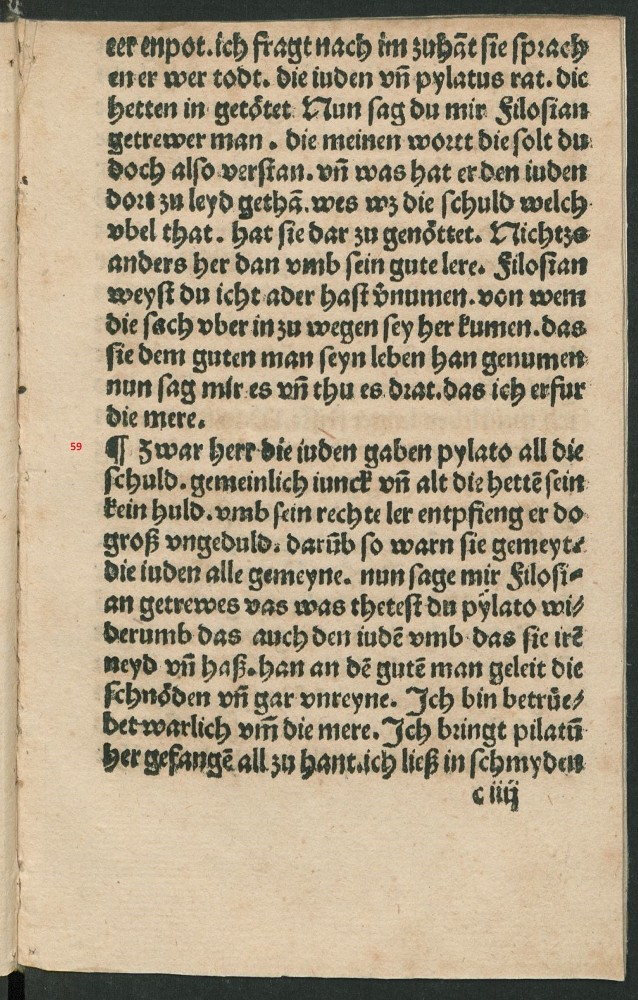 eer enpot. ich fragt nach im zuhāt sie sprach
en er wer todt. die iuden vn̄ pylatus rat. die
hetten in getötet Nun sag du mir Filosian
getrewer man . die meinen wortt die solt du
doch also verstan. vn̄ was hat er den iuden
dort zu leyd gethā. wes wz die schuld welch
vbel that. hat sie dar zu genöttet. Nichtzs
anders her dan vmb sein gute lere. Filosian
weyst du icht ader hast v̄numen. von wem
die sach vber in zu wegen sey her kumen. das
sie dem guten man seyn leben han genumen
nun sag mir es vn̄ thu es drat. das ich erfur
die mere.
59
¶ Zwar herr die iuden gaben pylato all die
schuld. gemeinlich iunck vn̄ alt die hettē sein
kein huld. vmb sein rechte ler entpfieng er do
groß vngeduld. darūb so warn sie gemeyte
die iuden alle gemeyne. nun sage mir Filosi⸗
an getrewes vas was thetest du pÿlato wi⸗
derumb das auch den iudē vmb das sie irē
neyd vn̄ haß. han an dē gutē man geleit die
schnöden vn̄ gar vnreyne. Ich bin betrüe⸗
bet warlich vm̄ die mere. Ich bringt pilatū
her gefangē all zu hant. ich ließ in schmyden
c iiij